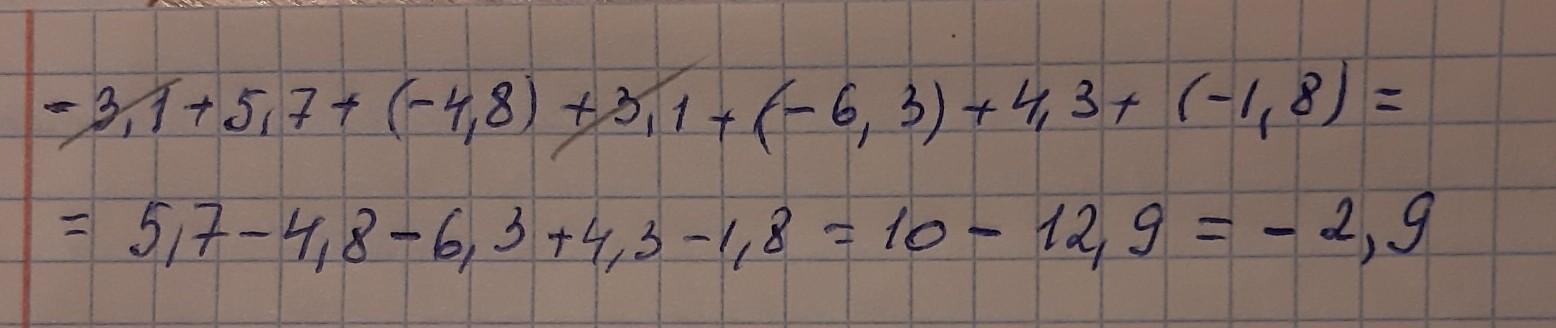 - 3,1 + 5,7 + (-4,8) + 3,1 + (-6,3) + 4,3 + (-1,8) =
= 5,7 - 4,8 - 6,3 + 4,3 - 1,8 = 10 - 12,9 = - 2,9